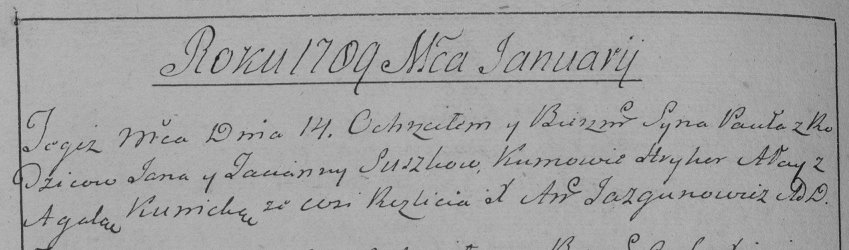 Roku 1789 Mča Januarij
Tegiż Mča Dnia 14. Ochrzciłem y Bierzmł Syna Pawła z Ro
dzicow Jana y Tacianny Suszkow, Kumowie Hryhor Apay z
Agatą Kunicką ze wsi Rezlicia X Anł Jazgunowicz AdD.